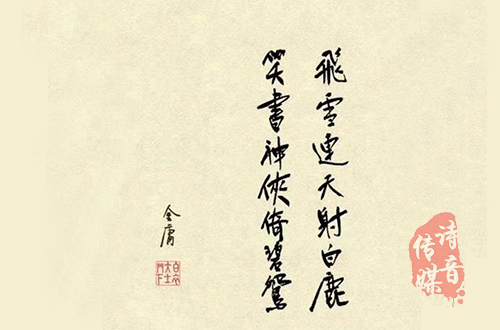 飛雪連天射白鹿
笑書神俠倚碧鴛
金庸
诗音
传媒